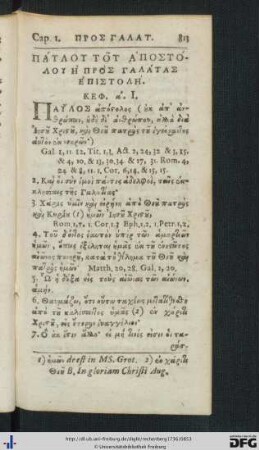 Cap. 1. ΠΡΟΣ ΓΑΛΑΤ. 813
ΠΑΥΛΟΥ ΤΟΥ ΑΠΟΣΤΟ-
ΛΟΥ Η ΠΡΟΣ ΓΑΛΑΤΑΣ
ΕΠΙΣΤΟΛΗ.
ΚΕΦ. α. I.
ΠΑΥΛΟΣ ἀπόστολος (οὐκ ἀπ' ἀν-
θρώπων, οὐδὲ δι' ἀνθρώπου, ἀλλὰ διὰ
Ἰησοῦ Χριστοῦ, καὶ Θεοῦ πατρὸς τοῦ ἐγείραντος
αὐτὸν ἐκ νεκρῶν)
Gal. 1, 11. 12. Tit. 1,3. Act. 2, 24, 32. & 3, 15.
& 4, 10. & 13, 30.34 & 17, 31. Rom. 4,
24. & 8, 11. 1. Cor. 6, 14. & 15, 15.
2. Καὶ οἱ σὺν ἐμοὶ πάντες ἀδελφοὶ, ταῖς ἐκ-
κλησίαις τῆς Γαλατίας.
3. Χάρις ὑμῖν καὶ εἰρήνη ἀπὸ Θεοῦ πατρὸς
καὶ Κυρίου (1) ἡμῶν Ἰησοῦ Χριστοῦ,
Rom. 1,7. 1. Cor. 1.3 Eph. 1,2. 1. Petr. 1,2.
4. Τοῦ δόντος ἑαυτὸν ὑπὲρ τῶν ἁμαρτιῶν
ἡμῶν, ὅπως ἐξέληται ἡμᾶς ἐκ τοῦ ἐνεστῶτος
αἰῶνος πονηροῦ, κατὰ τὸ θέλημα τοῦ Θεοῦ καὶ
πατρὸς ἡμῶν Matth. 20, 28. Gal. 2, 20.
5. Ὧι ἡ δόξα εἰς τοὺς αἰῶνας τῶν αἰώνων.
ἀμήν.
6. Θαυμάζω, ὅτι οὕτω ταχέως μετατίθεσθε
ἀπὸ τοῦ καλέσαντος ὑμᾶς (2) ἐν χάριτι
Χριστοῦ, εἰς ἕτερον εὐαγγέλιον·
7. Ὃ οὐκ ἔστιν ἄλλο· εἰ μή τινές εἰσιν οἱ τα-
ράσ-
1) ἡμῶν deest in MS. Gret. 2) ἐν χάριτι
Θεοῦ B. In gloriam Christi Aug.
http://dl.ub.uni-freiburg.de/diglit/rechenberg1736/0853
UNIVERSITÄTSBIBLIOTHEK FREIBURG
DFG